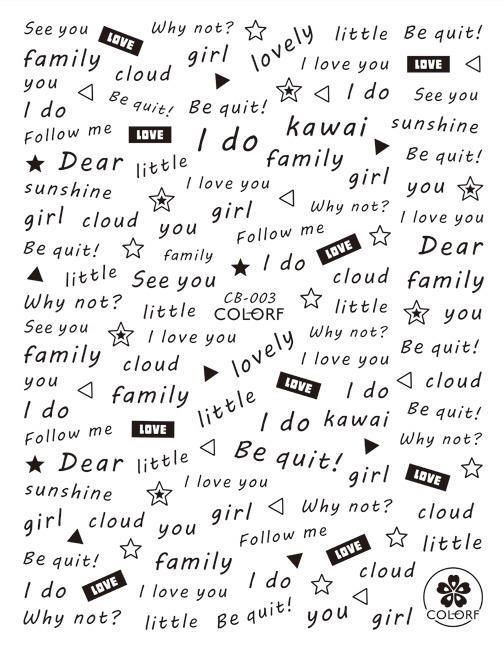 See you LOVE Why not? lovely little Be quit!
family girl I love you LOVE
you cloud I do See you
I do Be quit! Be quit! kawai sunshine
Follow me LOVE I do
Dear little family Be quit!
sunshine I love you girl you
girl cloud you girl Why not? I love you
Be quit! family Follow me LOVE Dear
little See you I do cloud family
Why not? little CB-003 little you
COLORF
See you I love you lovely Why not? Be quit!
family cloud I love you
you family LOVE I do cloud
I do little I do kawai Be quit!
Follow me LOVE Be quit! Why not?
Dear little girl LOVE
sunshine I love you
girl cloud you girl Why not? cloud
Be quit! family Follow me LOVE little
I do LOVE I love you I do cloud
Why not? little Be quit! you girl COLORF